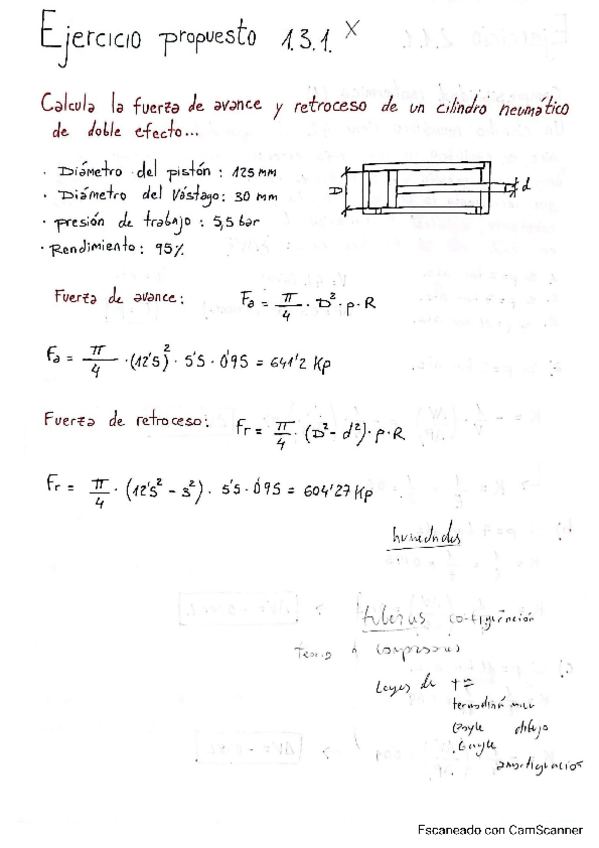 Ejercicio propuesto 1.3.1. X
Calcula la fuerza de avance y retroceso de un cilindro neumático
de doble efecto...
· Diámetro del pistón : 125 mm
· Diámetro del Vástago: 30 mm
· presión de trabajo : 5,5 bar
· Rendimiento: 95%
D
d
Fuerza de avance: Fa = π/4 · D² · p · R
Fa = π/4 · (12'5)² · 5'5 · 0'95 = 641'2 Kp
Fuerza de retroceso: Fr = π/4 · (D² - d²) · p · R
Fr = π/4 · (12'5² - 3²) · 5'5 · 0'95 = 604'27 Kp
humedades
tuberias configuración
compresores
Leyes de
Boyle dibujo
Escaneado con CamScanner